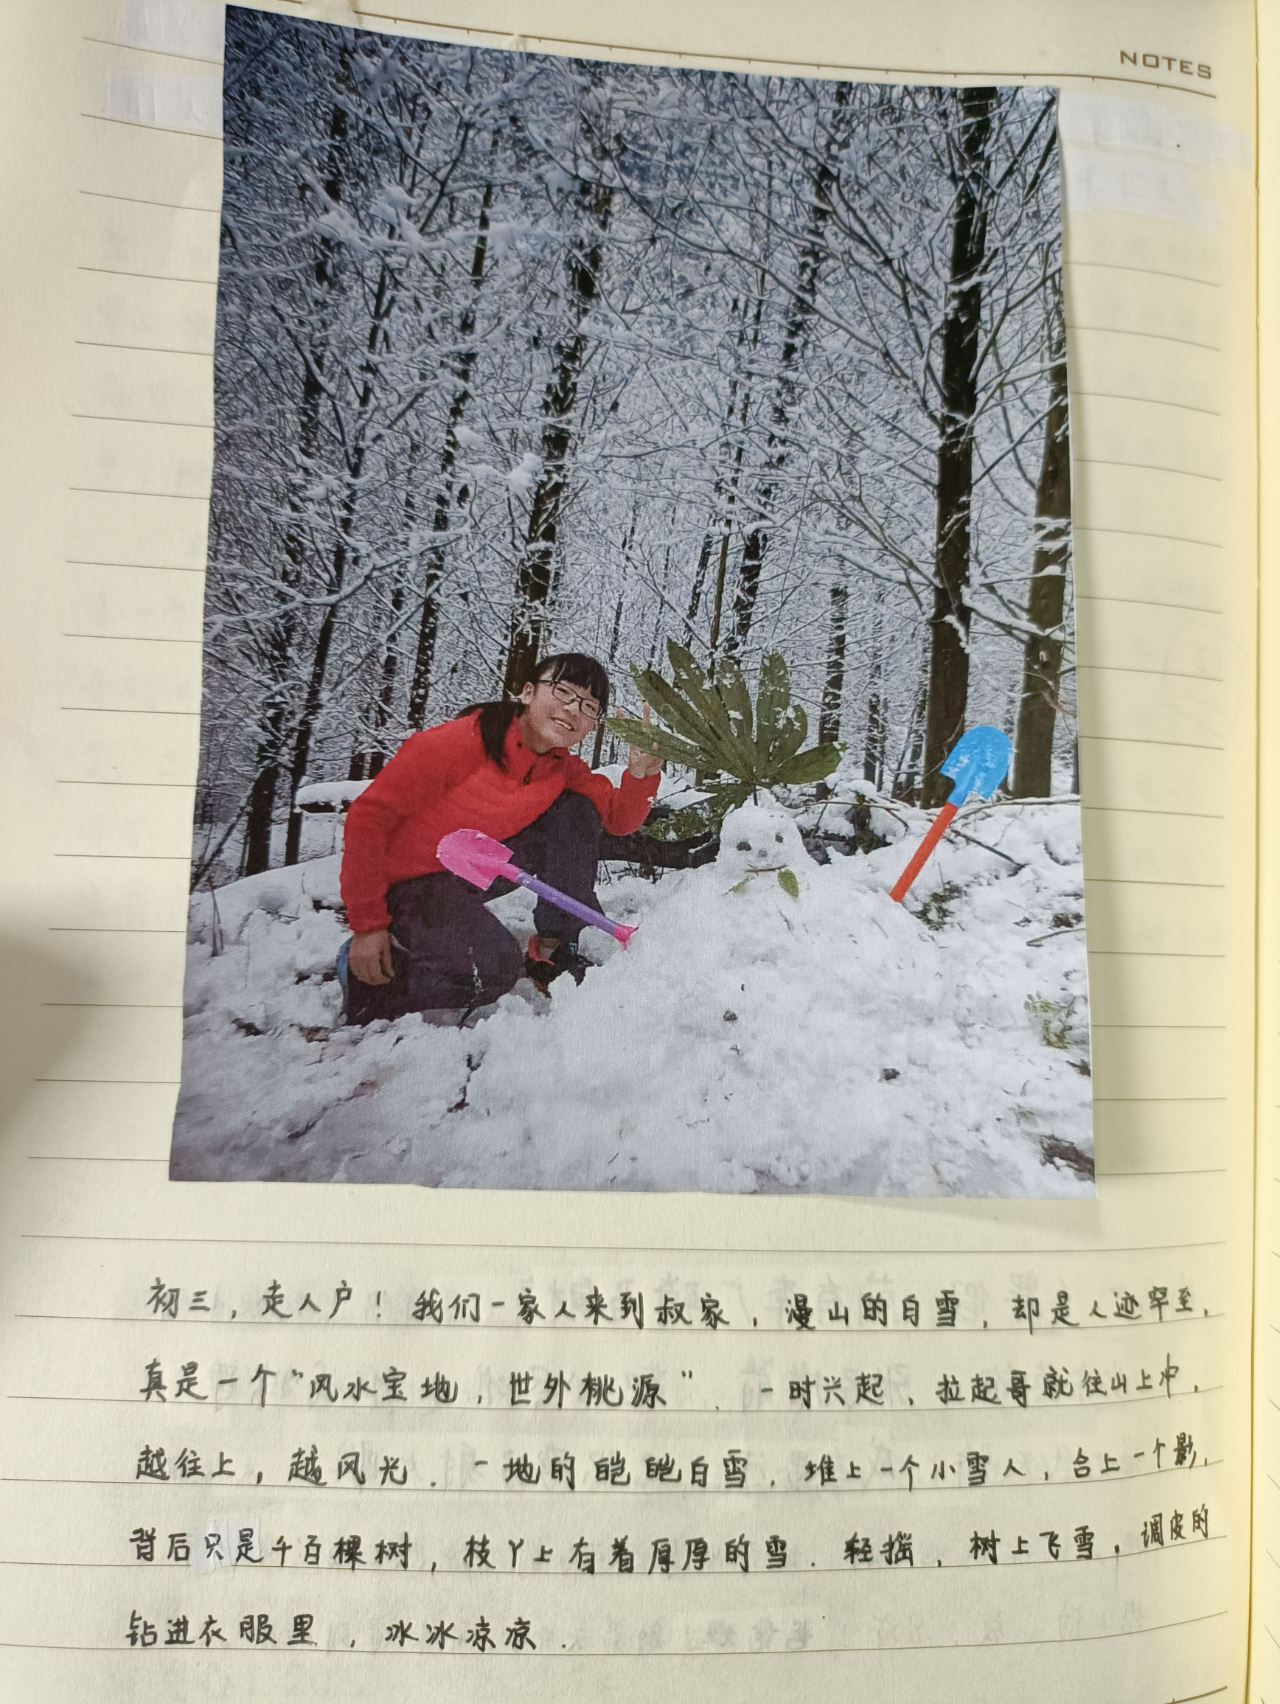 NOTES
初三，走人户！我们一家人来到叔家，漫山的白雪，却是人迹罕至，
真是一个“风水宝地，世外桃源”．一时兴起，拉起哥就往山上冲，
越往上，越风光．一地的皑皑白雪．堆上一个小雪人，合上一个影，
背后只是千百樑树，枝丫上有着厚厚的雪．轻摇，树上飞雪，调皮的
钻进衣服里，冰冰凉凉．